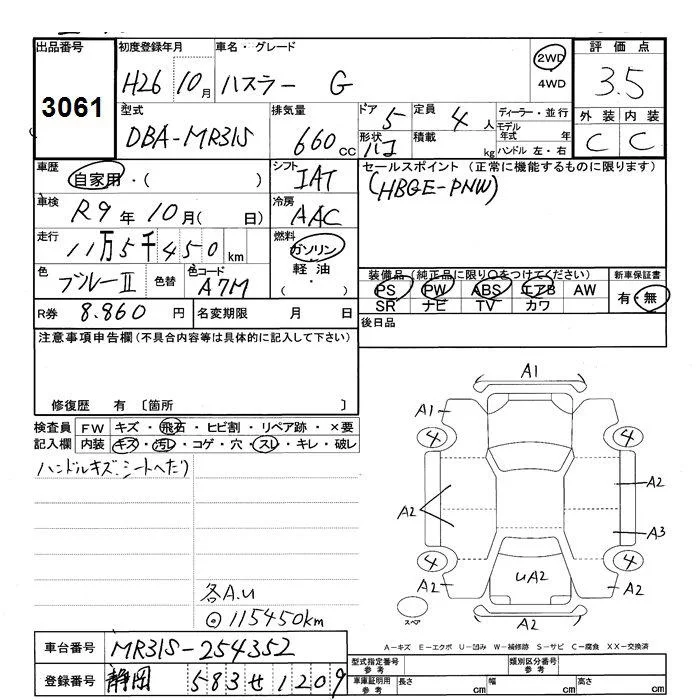 出品番号
3061
初度登録年月
H26 10月
車名・グレード
ハスラー G
2WD
4WD
評価点
3.5
外装 内装
C C
型式
DBA-MR31S
排気量
660 cc
ドア 5
定員 4 人
形状 バコ
積載 kg
ディーラー・並行
モデル年式 年
ハンドル 左・右
車歴
自家用・( )
シフト
IAT
セールスポイント (正常に機能するものに限ります)
(HBGE-PNW)
車検
R9年10月( 日)
冷房
AAC
走行
11万5千450km
燃料
ガソリン
軽油
( ・ )
色
ブルーII
色替
色コード
A7M
装備品 (純正品に限り○をつけてください)
PS PW ABS エアB AW
SR ナビ TV カワ
新車保証書
有・無
R券 8.860 円
名変期限 月 日
後日品
注意事項申告欄 (不具合内容等は具体的に記入して下さい)
修復歴 有 〔箇所 〕
検査員記入欄
FW キズ・飛石・ヒビ割・リペア跡・×要
内装 キズ・汚レ・コゲ・穴・スレ・キレ・破レ
ハンドルキズ.シートへたり
各A.U
⊙ 115450km
A1
A1
4 4
A2
A2
A3
4 4
A2
UA2
A2
A2
スペア
A-キズ E-エクボ U-凹み W-補修跡 S-サビ C-腐食 XX-交換済
車台番号 MR31S-254352
登録番号 静岡 583せ1209
型式指定番号 参考
類別区分番号 参考
車庫証明用 参考
長さ cm 幅 cm 高さ cm